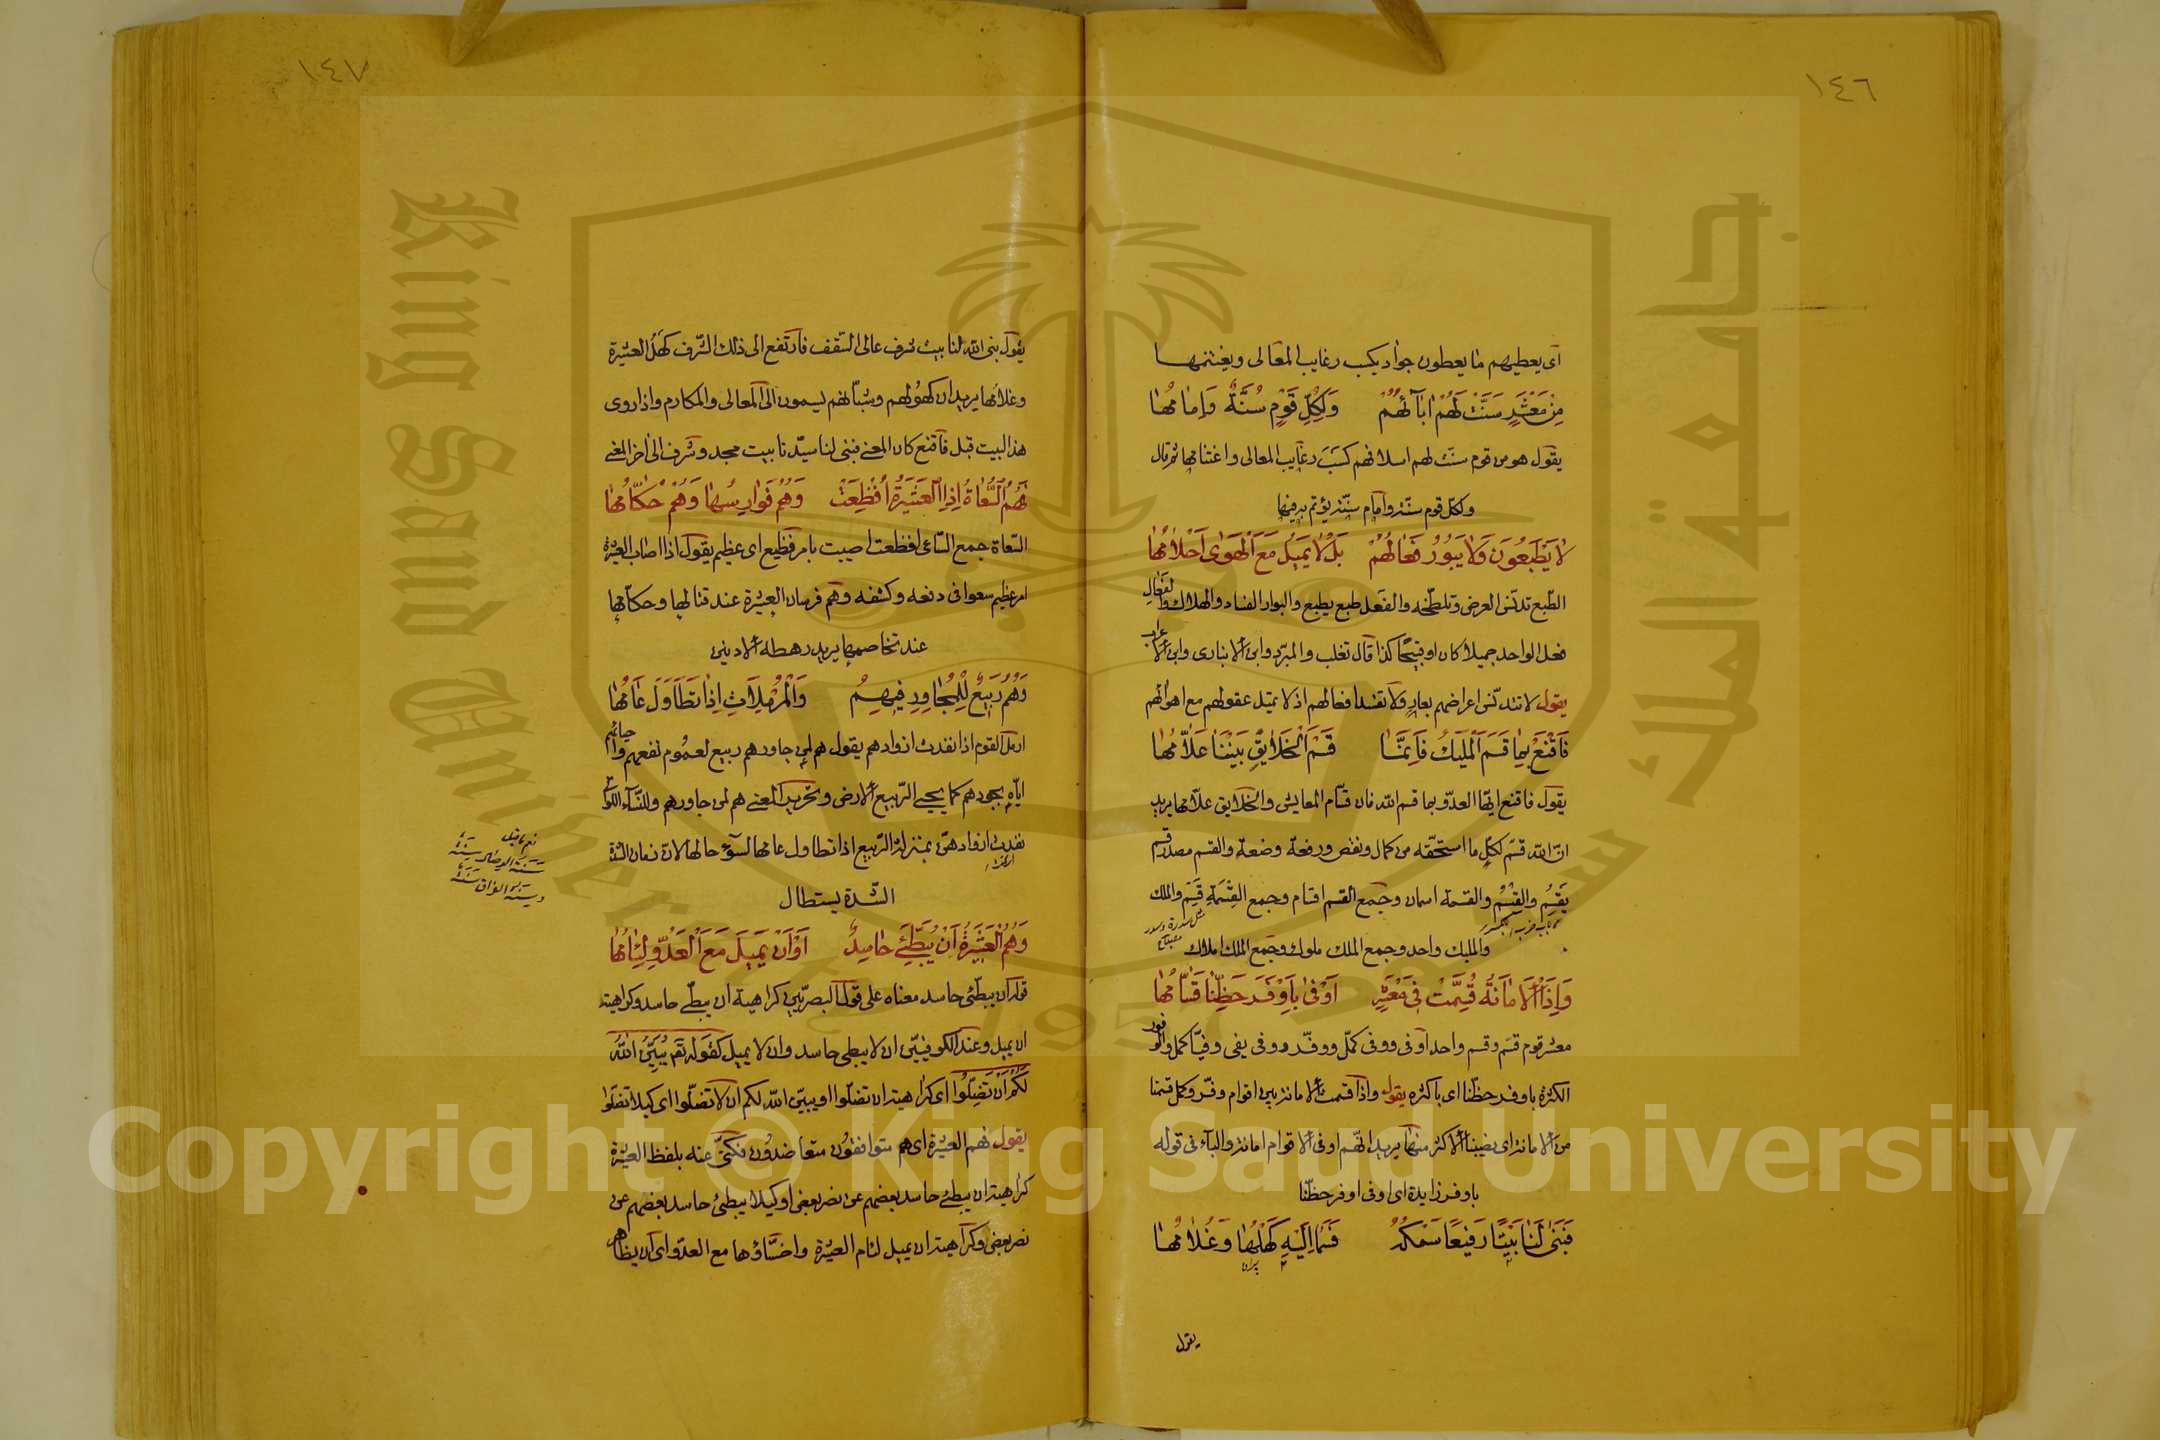 ١٤٦
اى يعطيهم ما يعطون جواد يكسب رغايب المعالى ويغتنمها
مِنْ مَعْشَرٍ سَنَّتْ لَهُمْ اٰبَآئُهُمْ وَلِكُلِّ قَوْمٍ سُنَّةٌ وَاِمَامُهَا
يقول هو من قوم سنّت لهم اسلافهم كسب رغايب المعالى واغتنامها ثم قال
ولكل قوم سنّة وامام سنّة يؤتم به فيها
لَا يَطْبَعُونَ وَلَا يَبُورُ فَعَالُهُمْ بَلْ لَا يَمِيلُ مَعَ الْهَوٰى اَحْلَامُهَا
الطّبع تدنّس العرض وتلطّخه والفعل طبع يطبع والبوار الفساد والهلاك والفَعال
فعل الواحد جميلا كان او قبيحًا كذا قال ثعلب والمبرّد وابن الانبارى وابن الاعرابى
يقول لا تتدنّس اعراضهم بعار ولا تفسد افعالهم اذ لا تميل عقولهم مع اهوائهم
فَاقْنَعْ بِمَا قَسَمَ الْمَلِيكُ فَاِنَّمَا قَسَمَ الْخَلَايِقَ بَيْنَنَا عَلَّامُهَا
يقول فاقنع ايّها العدوّ بما قسم الله فان قسّام المعايش والخلايق علّامها يريد
انّ الله قسم لكلّ ما استحقّه من كمال ونقص ورفعة وضعة والقسم مصدر قسم
يَقْسِمُ والقِسْمُ والقسمة اسمان وجمع القسم اقسام وجمع القِسْمَةِ قِسَم والملك
والمليك واحد وجمع الملك ملوك وجمع الملك املاك
وَاِذَا الْاَمَانَةُ قُسِّمَتْ فِى مَعْشَرٍ اَوْفىٰ بِاَوْفَرِ حَظِّنَا قَسَّامُهَا
معشر قوم قسَم وقسم واحد اوفى ووفى كمّل ووفّر ووفى يفى وفيّا كمل والوفور
الكثرة باوفر حظّنا اى باكثره يقول واذا قسمت الامانة بين اقوام وفّر وكمل قسمنا
من الامانة اى نصيبنا الاكثر منها يريد انّهم اوفى الاقوام امانة والبآء فى قوله
باوفر زايدة اى اوفى اوفر حظّنا
فَبَنٰى لَنَا بَيْتًا رَفِيعًا سَمْكُهُ فَسَمَا اِلَيْهِ كَهْلُهَا وَغُلَامُهَا
يقول
١٤٧
يقول بنى الله لنا بيت شرف عالى السّقف فارتفع الى ذلك الشّرف كهل العشيرة
وغلامها يريد ان كهولهم وشبّانهم يسمون الى المعالى والمكارم واذا روى
هذا البيت قبل فاقنع كان المعنى فبنى لنا سيّدنا بيت مجد وشرف الى اخر المعنى
فَهُمُ السُّعَاةُ اِذَا الْعَشِيرَةُ اُفْظِعَتْ وَهُمْ فَوَارِسُهَا وَهُمْ حُكَّامُهَا
السّعاة جمع السّاعى افظعت اصيبت بامر فظيع اى عظيم يقول اذا اصاب العشيرة
امر عظيم سعوا فى دفعه وكشفه وهم فرسان العشيرة عند قتالها وحكّامها
عند تخاصمها يريد رهطه الادنين
وَهُمُ رَبِيعٌ لِلْمُجَاوِرِ فِيهِمُ وَالْمُرْمِلَاتِ اِذَا تَطَاوَلَ عَامُهَا
ارمل القوم اذا نفدت ازوادهم يقول هم لمن جاورهم ربيع لعموم نفعهم واحيائهم
ايّاه بجودهم كما يحيى الرّبيع الارض وتحرير المعنى هم لمن جاورهم وللنّسآء اللواتى
نفدت ازوادهنّ بمنزلة الرّبيع اذا تطاول عامها لسوء حالها لانّ زمان الشدة
الشّدة يستطال
وَهُمُ الْعَشِيرَةُ اَنْ يُبَطِّئَ حَاسِدٌ اَوْ اَنْ يَمِيلَ مَعَ الْعَدُوِّ لِئَامُهَا
قوله ان يبطّئ حاسد معناه على قول البصريّين كراهية ان يبطّئ حاسد وكراهية
ان يميل وعند الكوفيّين ان لا يبطى حاسد وان لا يميل كقوله تع يُبَيِّنُ اللهُ
لَكُمْ اَنْ تَضِلُّوا اى كراهية ان تضلّوا او يبيّن الله لكم ان لا تضلّوا اى كيلا تضلوا
يقول فهم العشيرة اى هم متوافقون متعاضدون فكنّى عنه بلفظ العشيرة
كراهية ان يبطئ حاسد بعضهم عن نصر بعض او كيلا يبطئ حاسد بعضهم عن
نصر بعض وكراهية ان يميل لئام العشيرة واخسّاؤها مع العدوّ اى ان يظاهر
King Saud University
جامعة الملك سعود
1957
Copyright © King Saud University